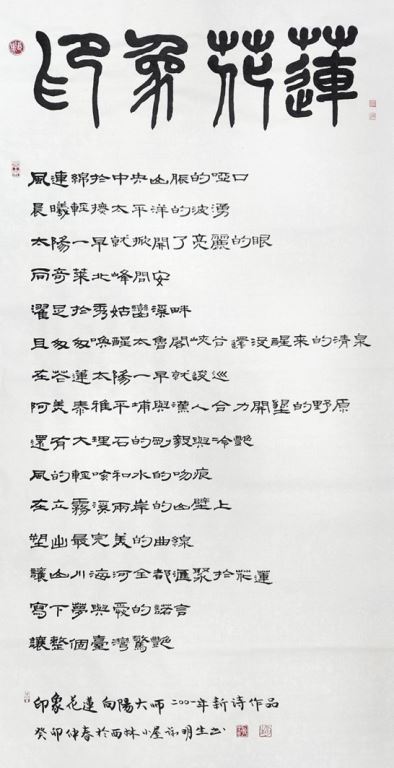 印象花蓮
風連綿於中央山脈的啞口
晨曦輕撩太平洋的波湧
太陽一早就掀開了亮麗的眼
同奇萊北峰問安
濯足於秀姑巒溪畔
且匆匆喚醒太魯閣峽谷還沒醒來的清泉
在花蓮太陽一早就逡巡
阿美泰雅平埔與漢人合力開墾的野原
還有大理石的剛毅與冷艷
風的輕咳和水的吻痕
在立霧溪兩岸的山壁上
塑出最完美的曲線
讓山川海河全都滙聚於花蓮
寫下夢與愛的諾言
讓整個臺灣驚艷
印象花蓮 向陽大師 二〇〇一年新詩作品
癸卯仲春於西林小屋 明生書